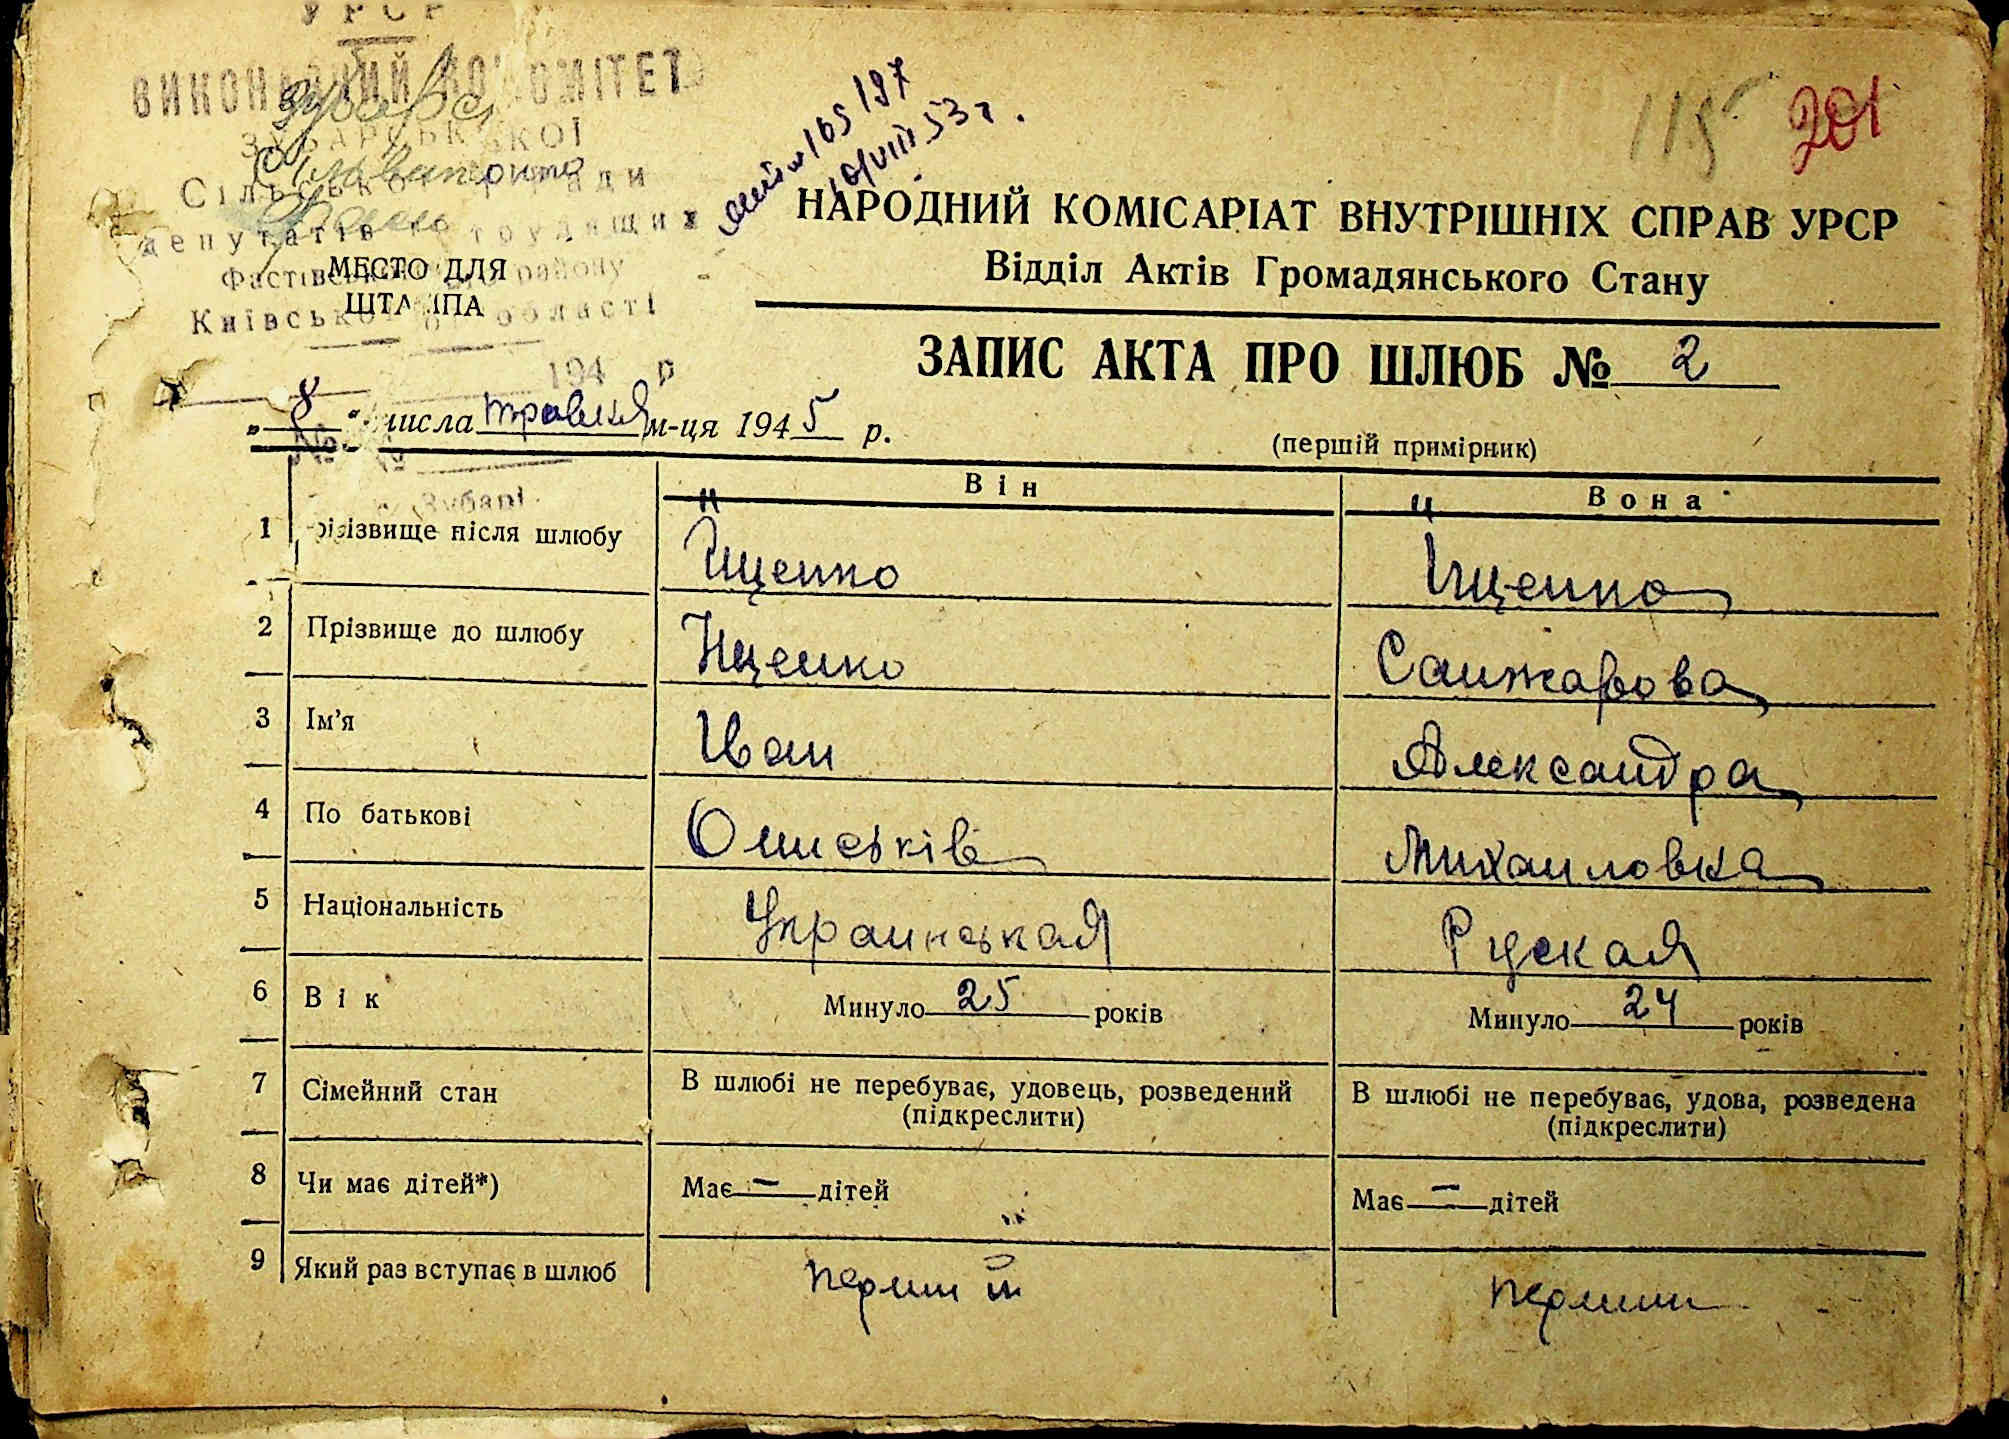 УРСР
ВИКОНАВЧИЙ КОМІТЕТ
ЗУБАРСЬКОЇ
Сільської ради
депутатів трудящих
Фастівського району
Київської області
МЕСТО ДЛЯ
ШТАМПА
194 р
№
с. Зубарі
105197
10/VIII 53 г.
115
201
НАРОДНИЙ КОМІСАРІАТ ВНУТРІШНІХ СПРАВ УРСР
Відділ Актів Громадянського Стану
ЗАПИС АКТА ПРО ШЛЮБ № 2
„ 8 “ числа травня м-ця 1945 р.
(першій примірник)
Він Вона
1 Прізвище після шлюбу Іщенко Іщенко
2 Прізвище до шлюбу Іщенко Санжарова
3 Ім’я Иван Александра
4 По батькові Омиськів Михаиловна
5 Національність Украинськая Руская
6 Вік Минуло 25 років Минуло 24 років
7 Сімейний стан В шлюбі не перебуває, удовець, розведений (підкреслити) В шлюбі не перебуває, удова, розведена (підкреслити)
8 Чи має дітей*) Має — дітей Має — дітей
9 Який раз вступає в шлюб перший перший